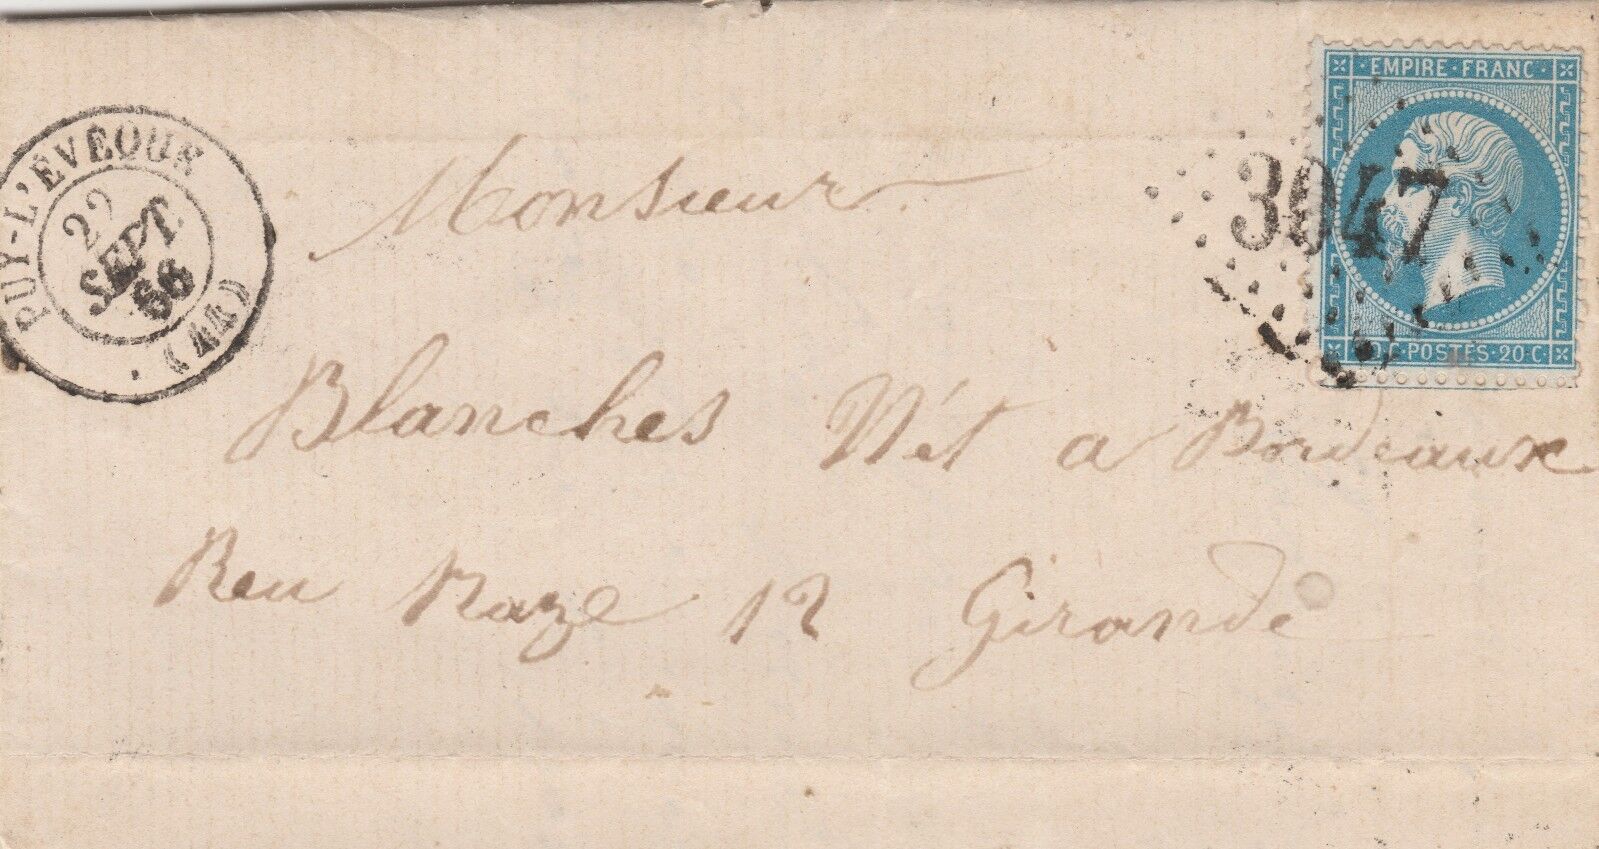 PUY-L'ÉVÊQUE
22
SEPT.
66
(44)
EMPIRE·FRANC·
3047
20 C·POSTES·20·C
Monsieur
Blanches Nét a Bordeaux
Reu Raze 12 Girande